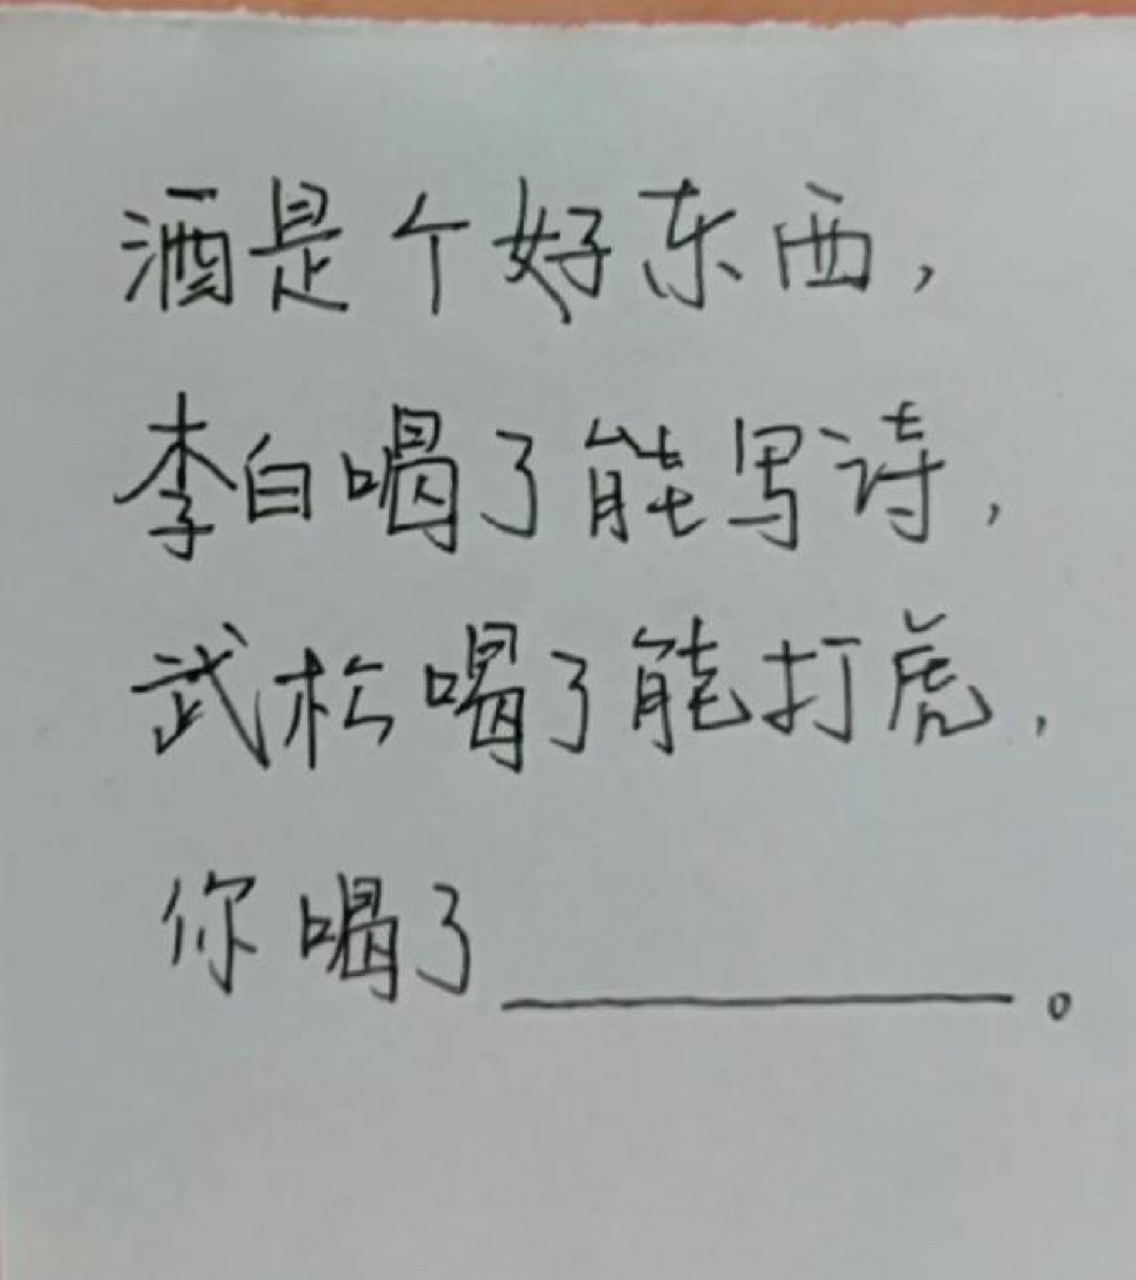 酒是个好东西，
李白喝了能写诗，
武松喝了能打虎，
你喝了__________。